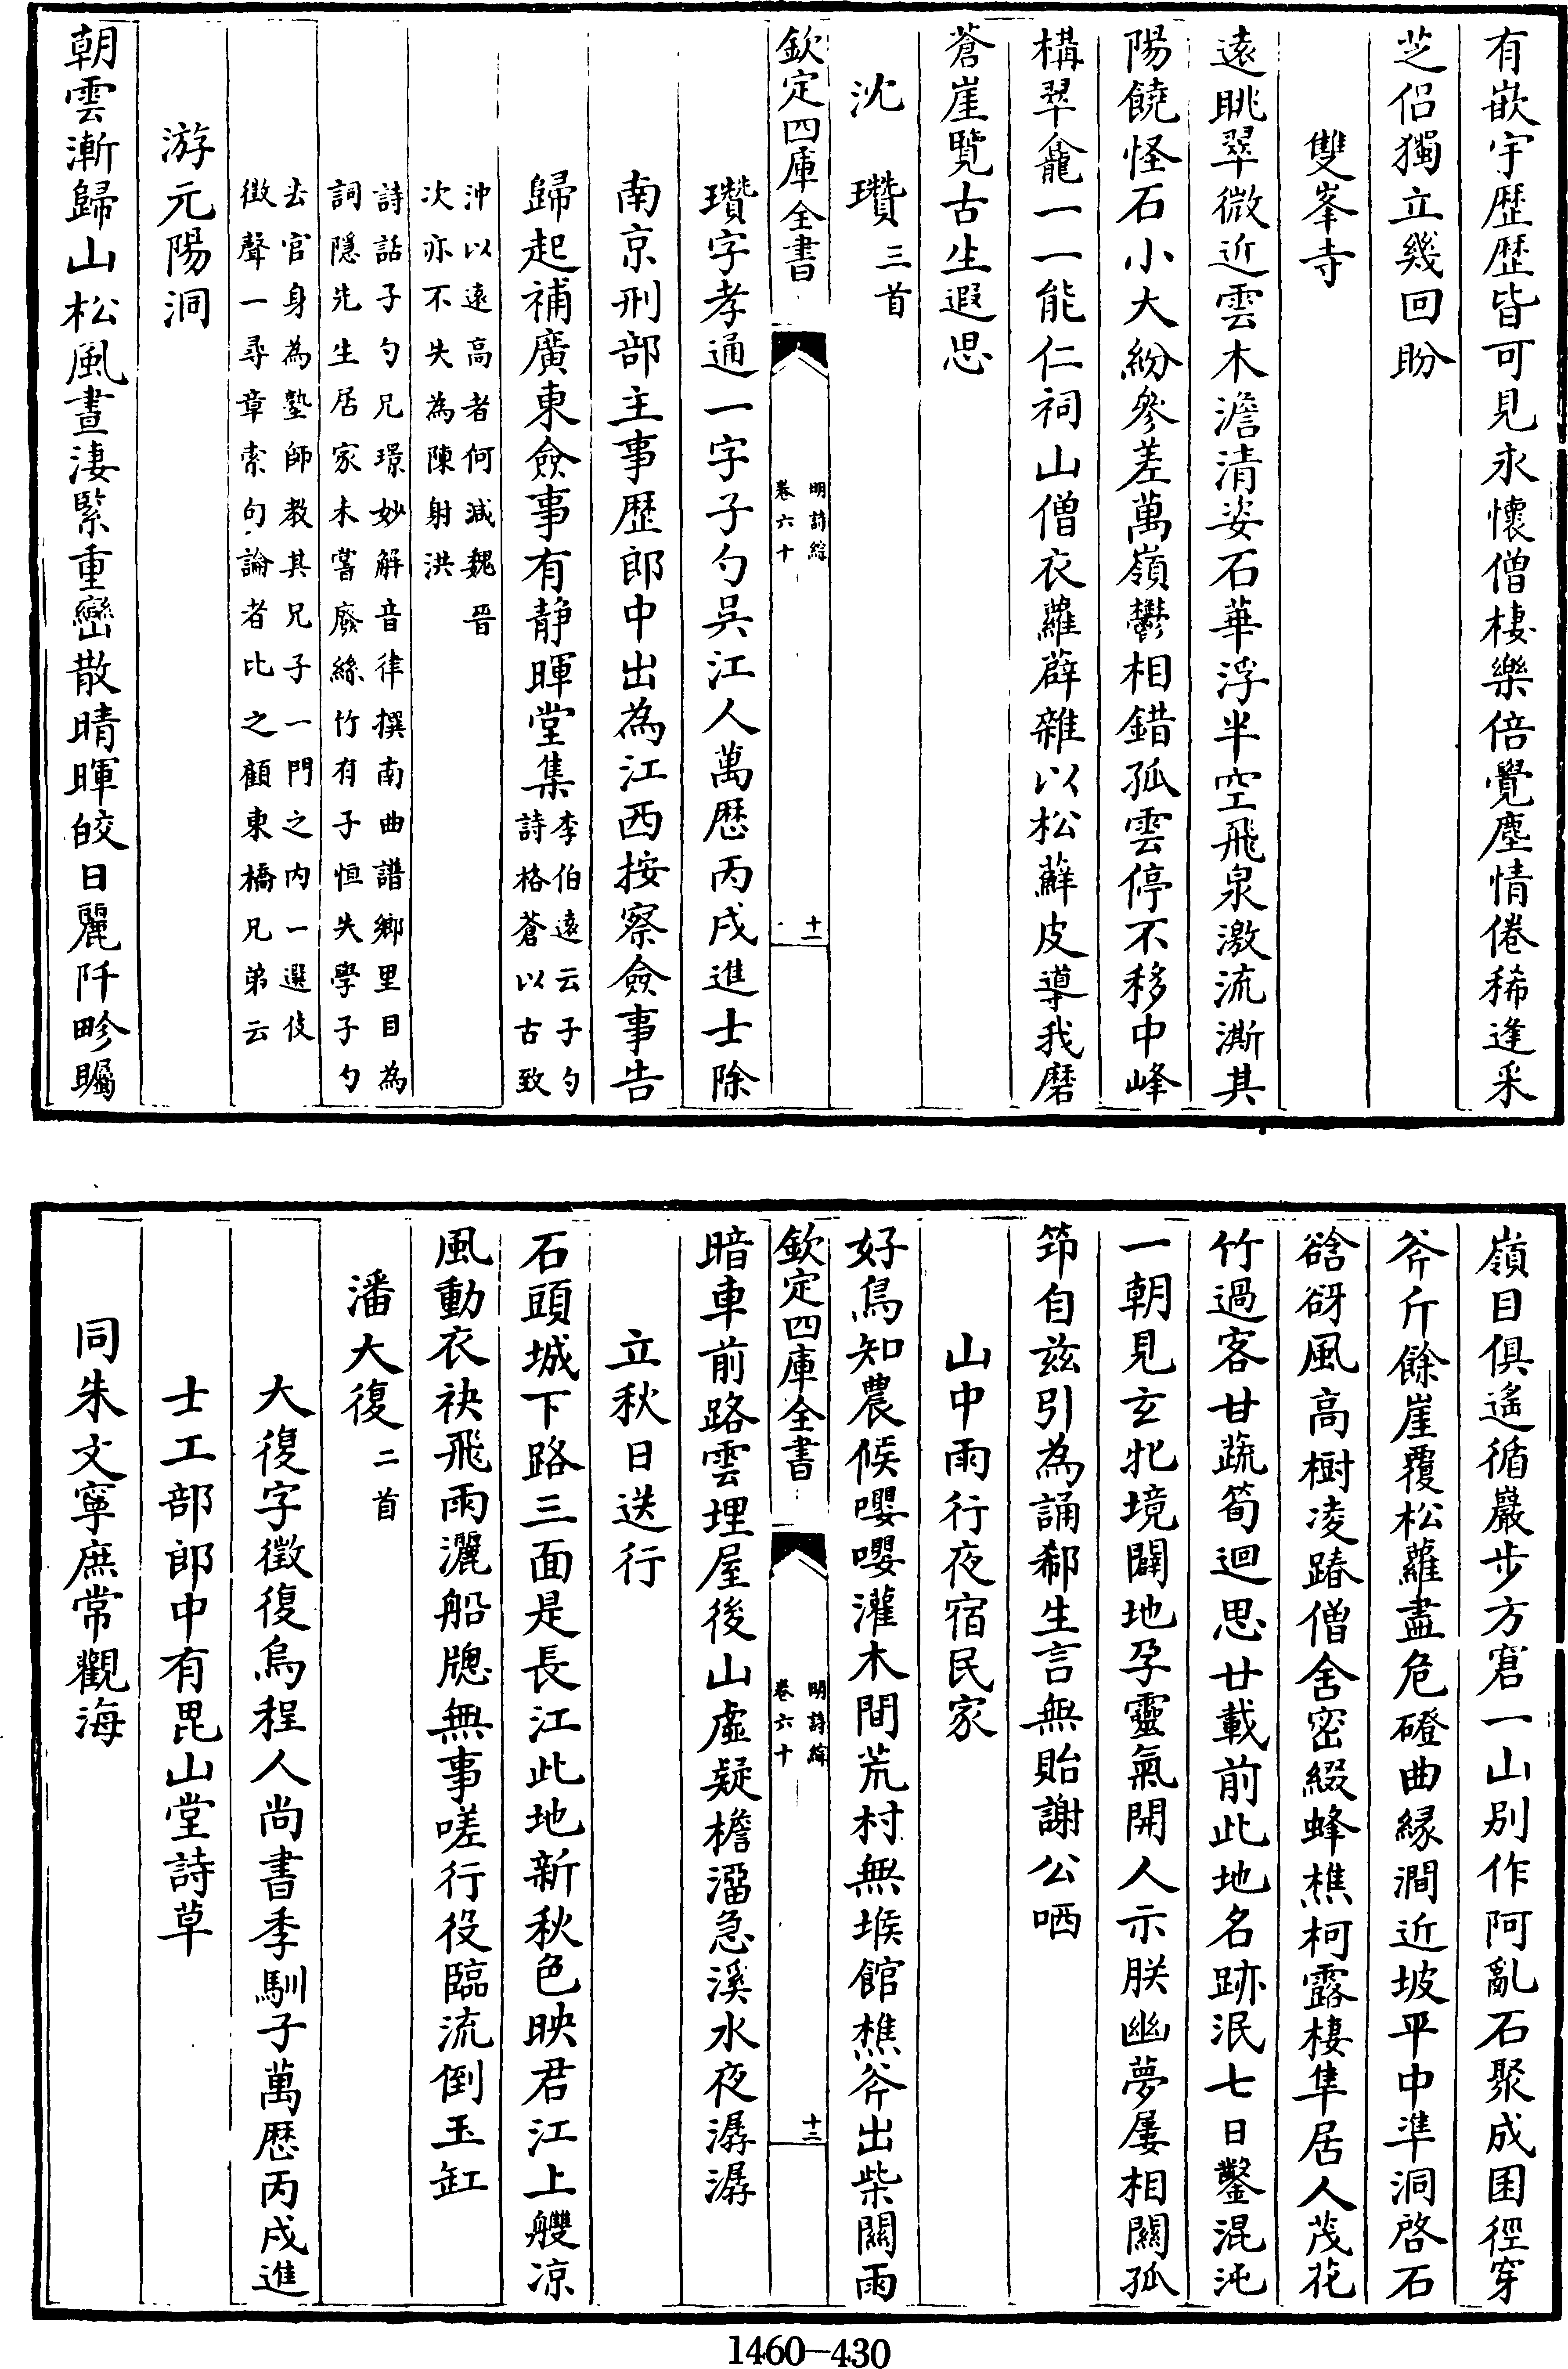 有嵌宇歴歴皆可見永懷僧棲樂倍覺塵情倦稀逢采
芝侣獨立幾回盼
雙峯寺
遠眺翠微近雲木澹清姿石華浮半空飛泉激流澌其
陽饒怪石小大紛參差萬嶺鬱相錯孤雲停不移中峰
構翠龕一一能仁祠山僧衣蘿薜雜以松蘚皮導我磨
蒼崖覽古生遐思
沈瓚三首
欽定四庫全書
明詩綜
卷六十
十一
瓚字孝通一字子勺吳江人萬歴丙戌進士除
南京刑部主事歴郎中出為江西按察僉事告
歸起補廣東僉事有静暉堂集李伯遠云子勺
詩格蒼以古致
沖以遠高者何減魏晉
次亦不失為陳射洪
詩話子勺兄璟妙解音律撰南曲譜鄉里目為
詞隱先生居家未嘗廢絲竹有子恒失學子勺
去官身為塾師教其兄子一門之内一選伎
徴聲一尋章索句論者比之顧東橋兄弟云
游元陽洞
朝雲漸歸山松風晝淒緊重巒散晴暉皎日麗阡畛矚
嶺目俱遙循巖步方窘一山别作阿亂石聚成囷徑穿
斧斤餘崖覆松蘿盡危磴曲縁澗近坡平中準洞啓石
谽谺風高樹凌踳僧舍密綴蜂樵柯露棲隼居人茂花
竹過客甘蔬筍迴思廿載前此地名跡泯七日鑿混沌
一朝見玄牝境闢地孕靈氣開人示朕幽夢屢相關孤
筇自兹引為誦郗生言無貽謝公哂
山中雨行夜宿民家
好鳥知農候嚶嚶灌木間荒村無堠館樵斧出柴關雨
欽定四庫全書
明詩綜
卷六十
十二
暗車前路雲埋屋後山虛疑檐溜急溪水夜潺潺
立秋日送行
石頭城下路三面是長江此地新秋色映君江上艭凉
風動衣袂飛雨灑船牕無事嗟行役臨流倒玉缸
潘大復二首
大復字徴復烏程人尚書季馴子萬歴丙戌進
士工部郎中有毘山堂詩草
同朱文寧庶常觀海
1460—430